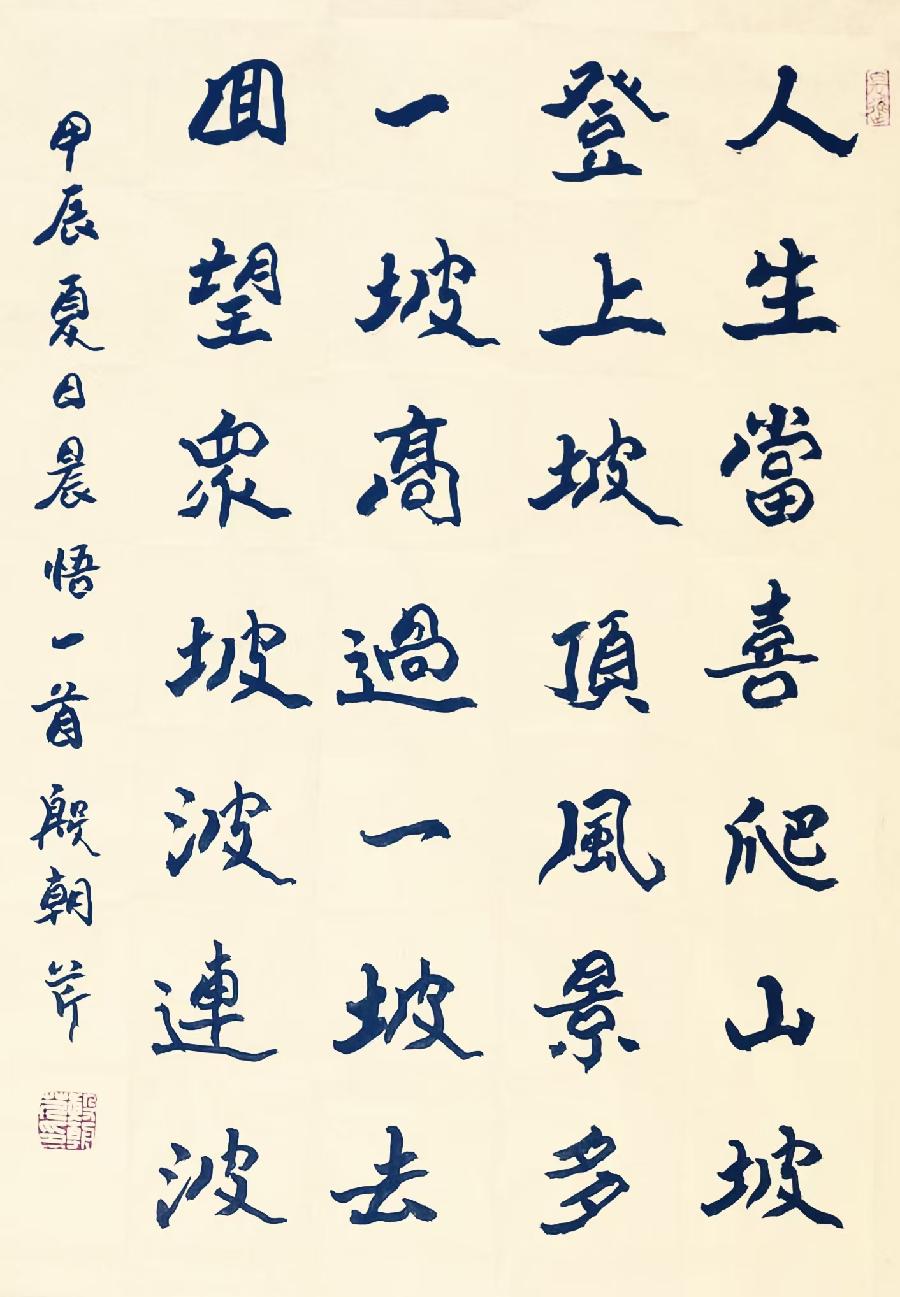 人生當喜爬山坡
登上坡頂風景多
一坡高過一坡去
回望眾坡波連波
甲辰夏日晨悟一首殷朝芹